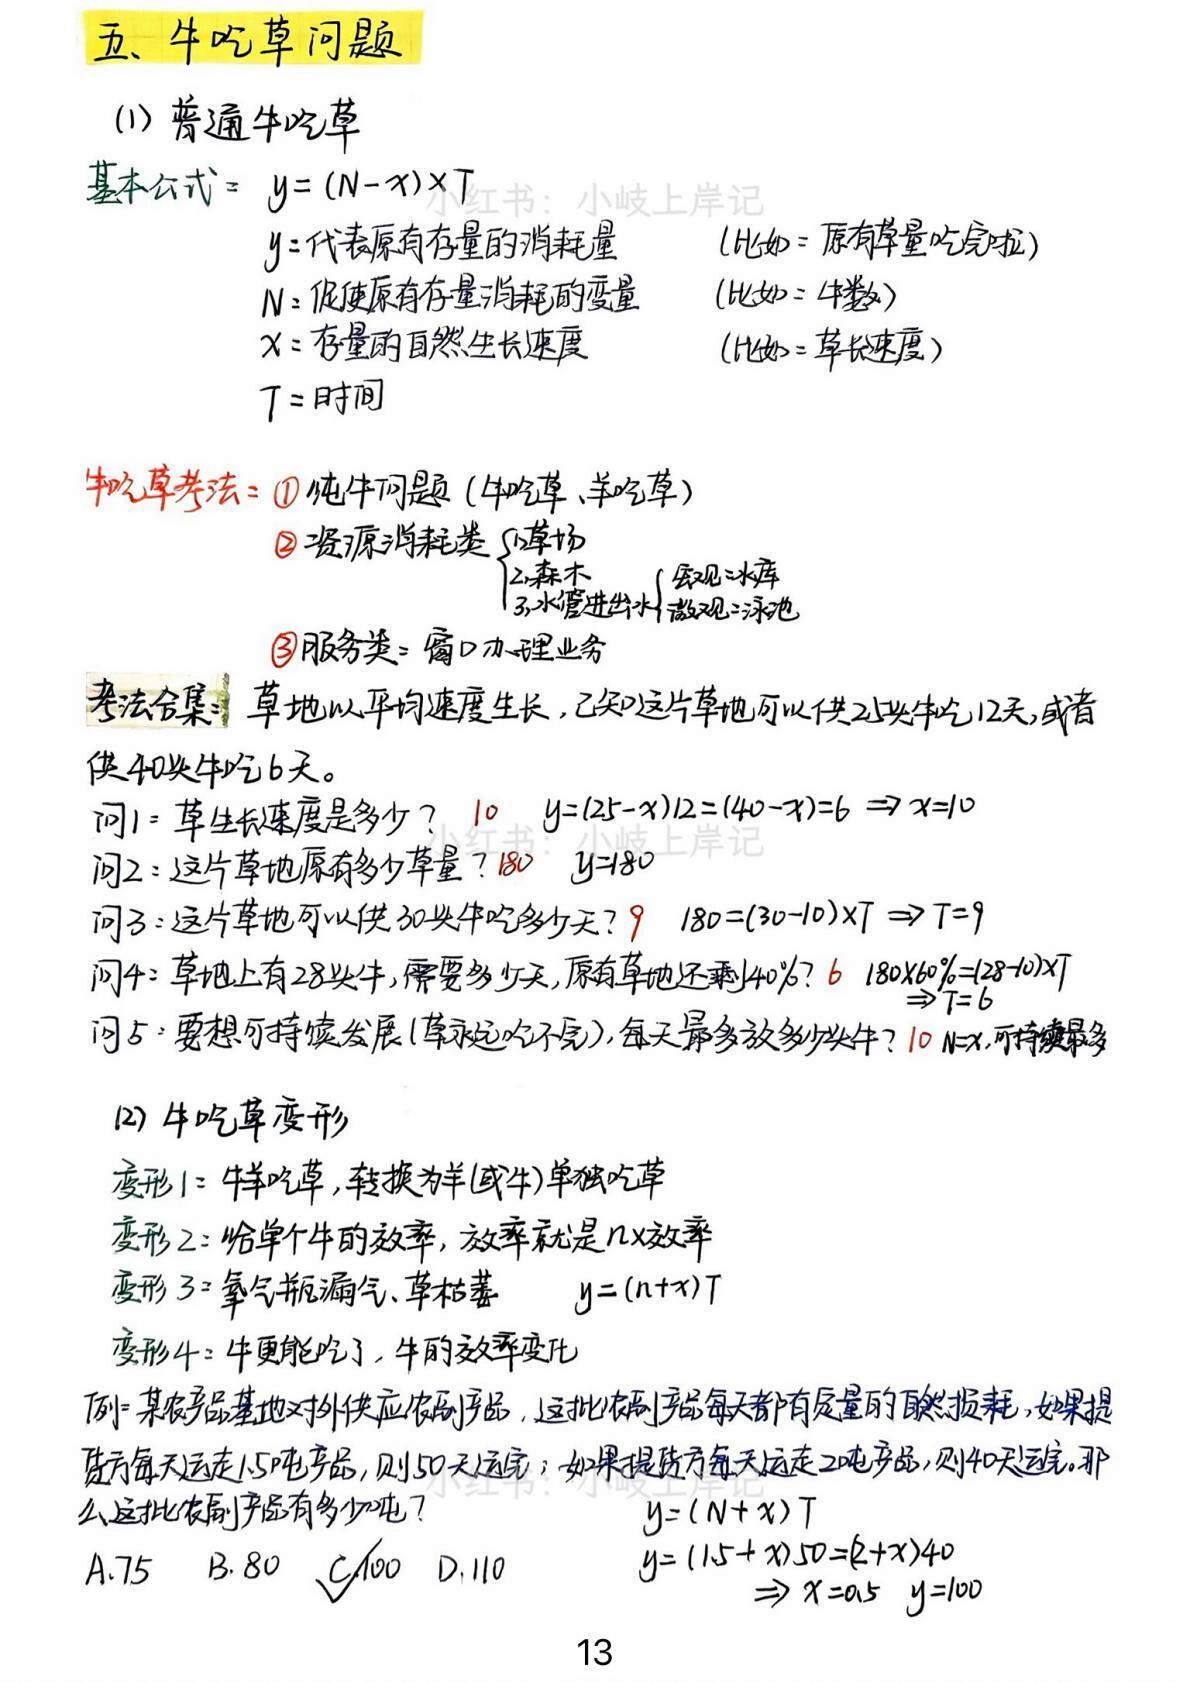 五、牛吃草问题
(1) 普通牛吃草
小红书：小岐上岸记
基本公式： y=(N-x)×T
y=代表原有存量的消耗量 (比如=原有草量吃完啦)
N=促使原有存量消耗的变量 (比如=牛数)
x=存量的自然生长速度 (比如=草长速度)
T=时间
牛吃草考法：①纯牛问题(牛吃草、羊吃草)
②资源消耗类 1.草场
2.森木 宏观=水库
3.水管进出水 微观=泳池
③服务类=窗口办理业务
考法合集： 草地以平均速度生长，已知这片草地可以供25头牛吃12天，或者
供40头牛吃6天。
问1：草生长速度是多少？ 10 y=(25-x)12=(40-x)=6 ⇒ x=10
小红书：小岐上岸记
问2：这片草地原有多少草量？180 y=180
问3：这片草地可以供30头牛吃多少天？9 180=(30-10)×T ⇒ T=9
问4：草地上有28头牛，需要多少天，原有草地还剩40%？6 180×60%=(28-10)×T
⇒T=6
问5：要想可持续发展(草永远吃不完)，每天最多放多少头牛？10 N=x，可持续最多
(2) 牛吃草变形
变形1：牛羊吃草，转换为羊(或牛)单独吃草
变形2：给单个牛的效率，效率就是n×效率
变形3：氧气瓶漏气、草枯萎 y=(n+x)T
变形4：牛更能吃了，牛的效率变化
例：某农产品基地对外供应农副产品，这批农副产品每天都有定量的自然损耗，如果提
货方每天运走1.5吨产品，则50天运完；如果提货方每天运走2吨产品，则40天运完。那
小红书：小岐上岸记
么这批农副产品有多少吨？ y=(N+x)T
A.75 B.80 C.100 D.110 y=(1.5+x)50=(2+x)40
⇒ x=0.5 y=100
13